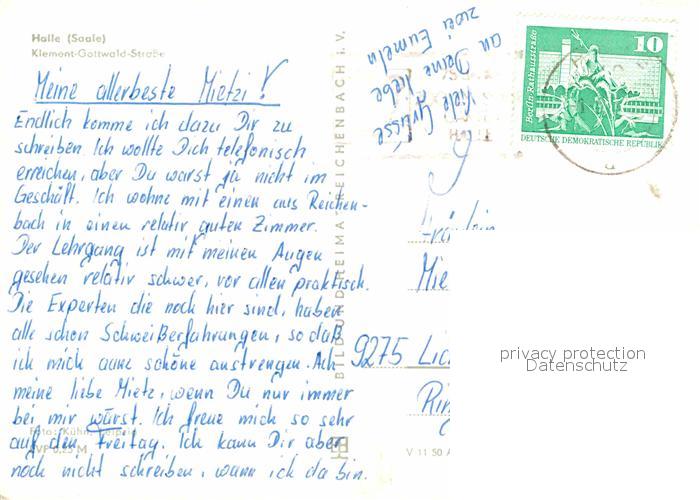 Halle (Saale)
Klement-Gottwald-Straße
Meine allerbeste Mietzi!
Endlich komme ich dazu Dir zu
schreiben. Ich wollte Dich telefonisch
erreichen, aber Du warst ja nicht im
Geschäft. Ich wohne mit einen aus Reichen-
bach in einen relativ guten Zimmer.
Der Lehrgang ist mit meinen Augen
gesehen relativ schwer, vor allen praktisch.
Die Experten die noch hier sind, haben
alle schon Schweißerfahrungen, so daß
ich mich ganz schöne anstrengen. Ach
meine liebe Mietz, wenn Du nur immer
bei mir wärst. Ich freue mich so sehr
auf den Freitag. Ich kann Dir aber
noch nicht schreiben, wann ich da bin.
Viele liebe Grüsse
an Deine
zwei Eumeln
Foto: Kühn, Leipzig
EVP 0,25 M
BILD UND HEIMAT REICHENBACH i. V.
V 11 50 A
10
Berlin, Rathausstraße
DEUTSCHE DEMOKRATISCHE REPUBLIK
Fräulein
Mie
9275 Lic
Rin
privacy protection
Datenschutz